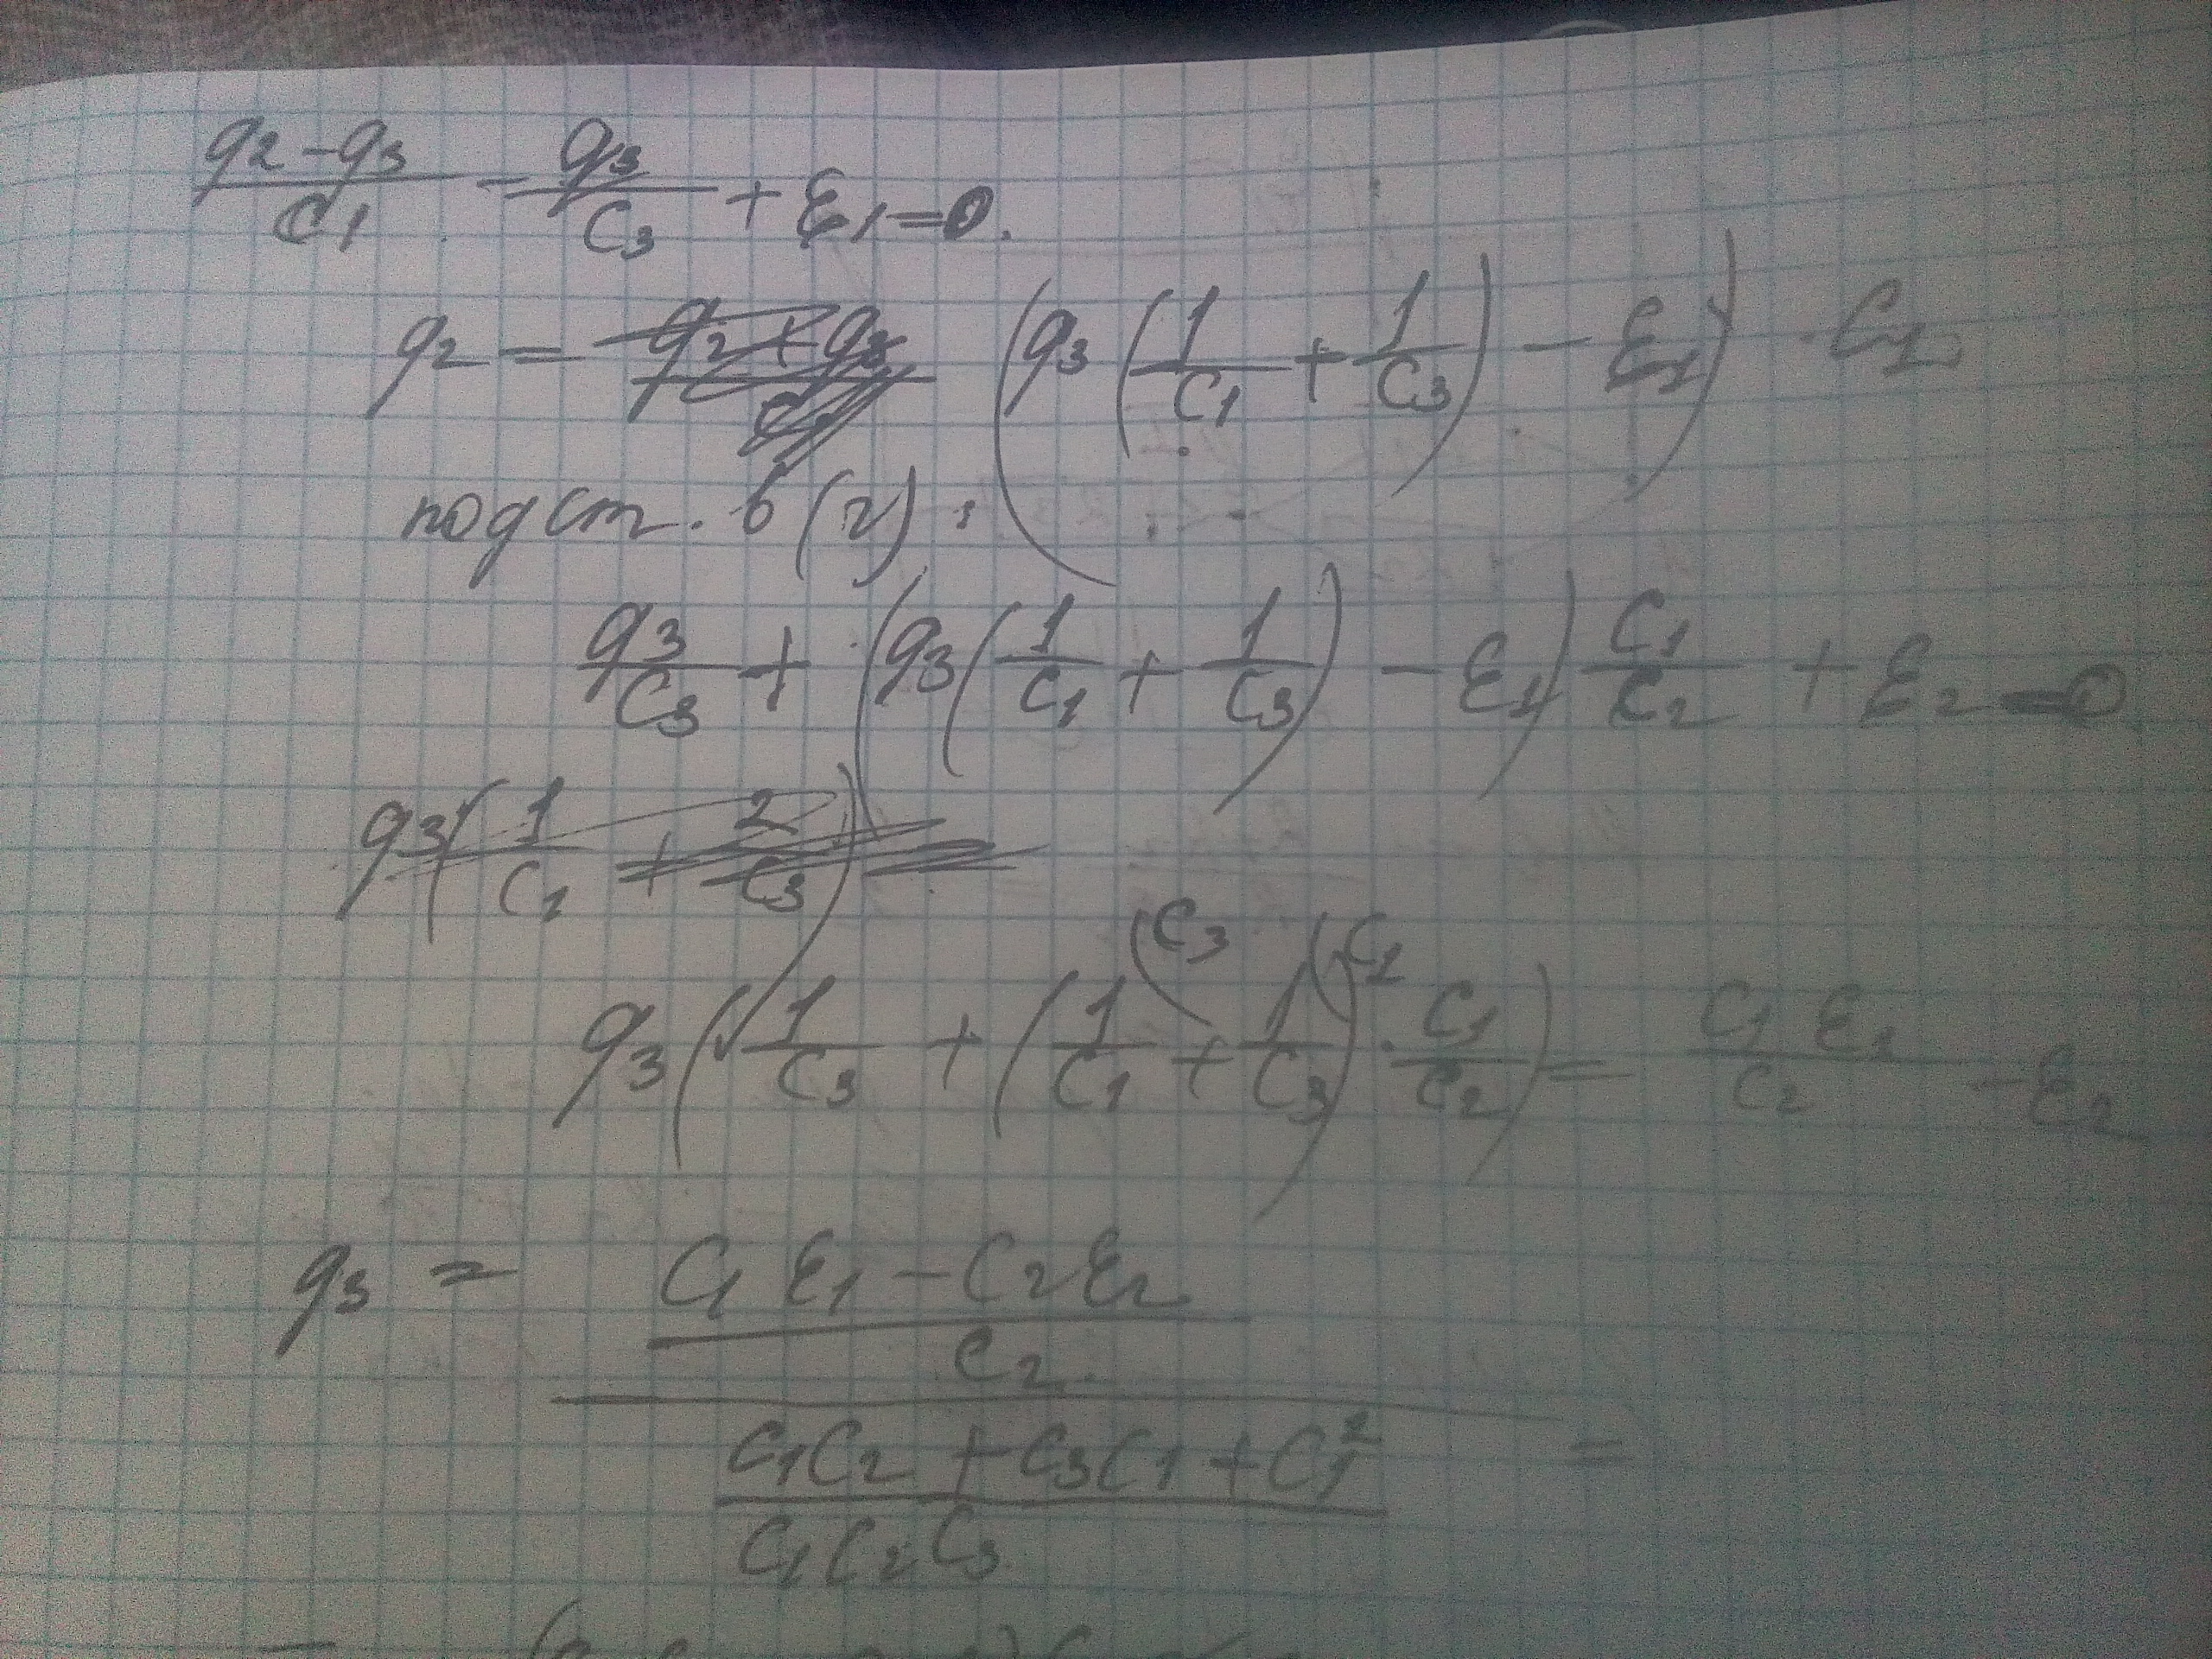 (q2 - q3)/C1 - q3/C3 + ℰ1 = 0.
q2 = (q3(1/C1 + 1/C3) - ℰ1) · C1
подст. в (2):
q3/C3 + (q3(1/C1 + 1/C3) - ℰ1) C1/C2 + ℰ2 = 0
q3(1/C1 + 2/C3) =
(C3 (C1
q3(1/C3 + (1/C1 + 1/C3) · C1/C2) = C1 ℰ1/C2 - ℰ2
q3 = ((C1 ℰ1 - C2 ℰ2)/C2) / ((C1C2 + C3C1 + C1²)/(C1C2C3)) =